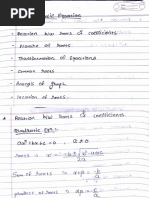 Equation
- Relation b/w roots & coefficients
- Nature of roots
- Transformation of Equations
- Common roots
- Analysis of graph
- Location of roots.
* Relation b/w roots & coefficients
Quadratic Eqn:-
ax²+bx+c=0 , a≠0
roots ⇒ x =
Sum of roots ⇒ α+β = -b/a
product of roots ⇒ α·β = c/a